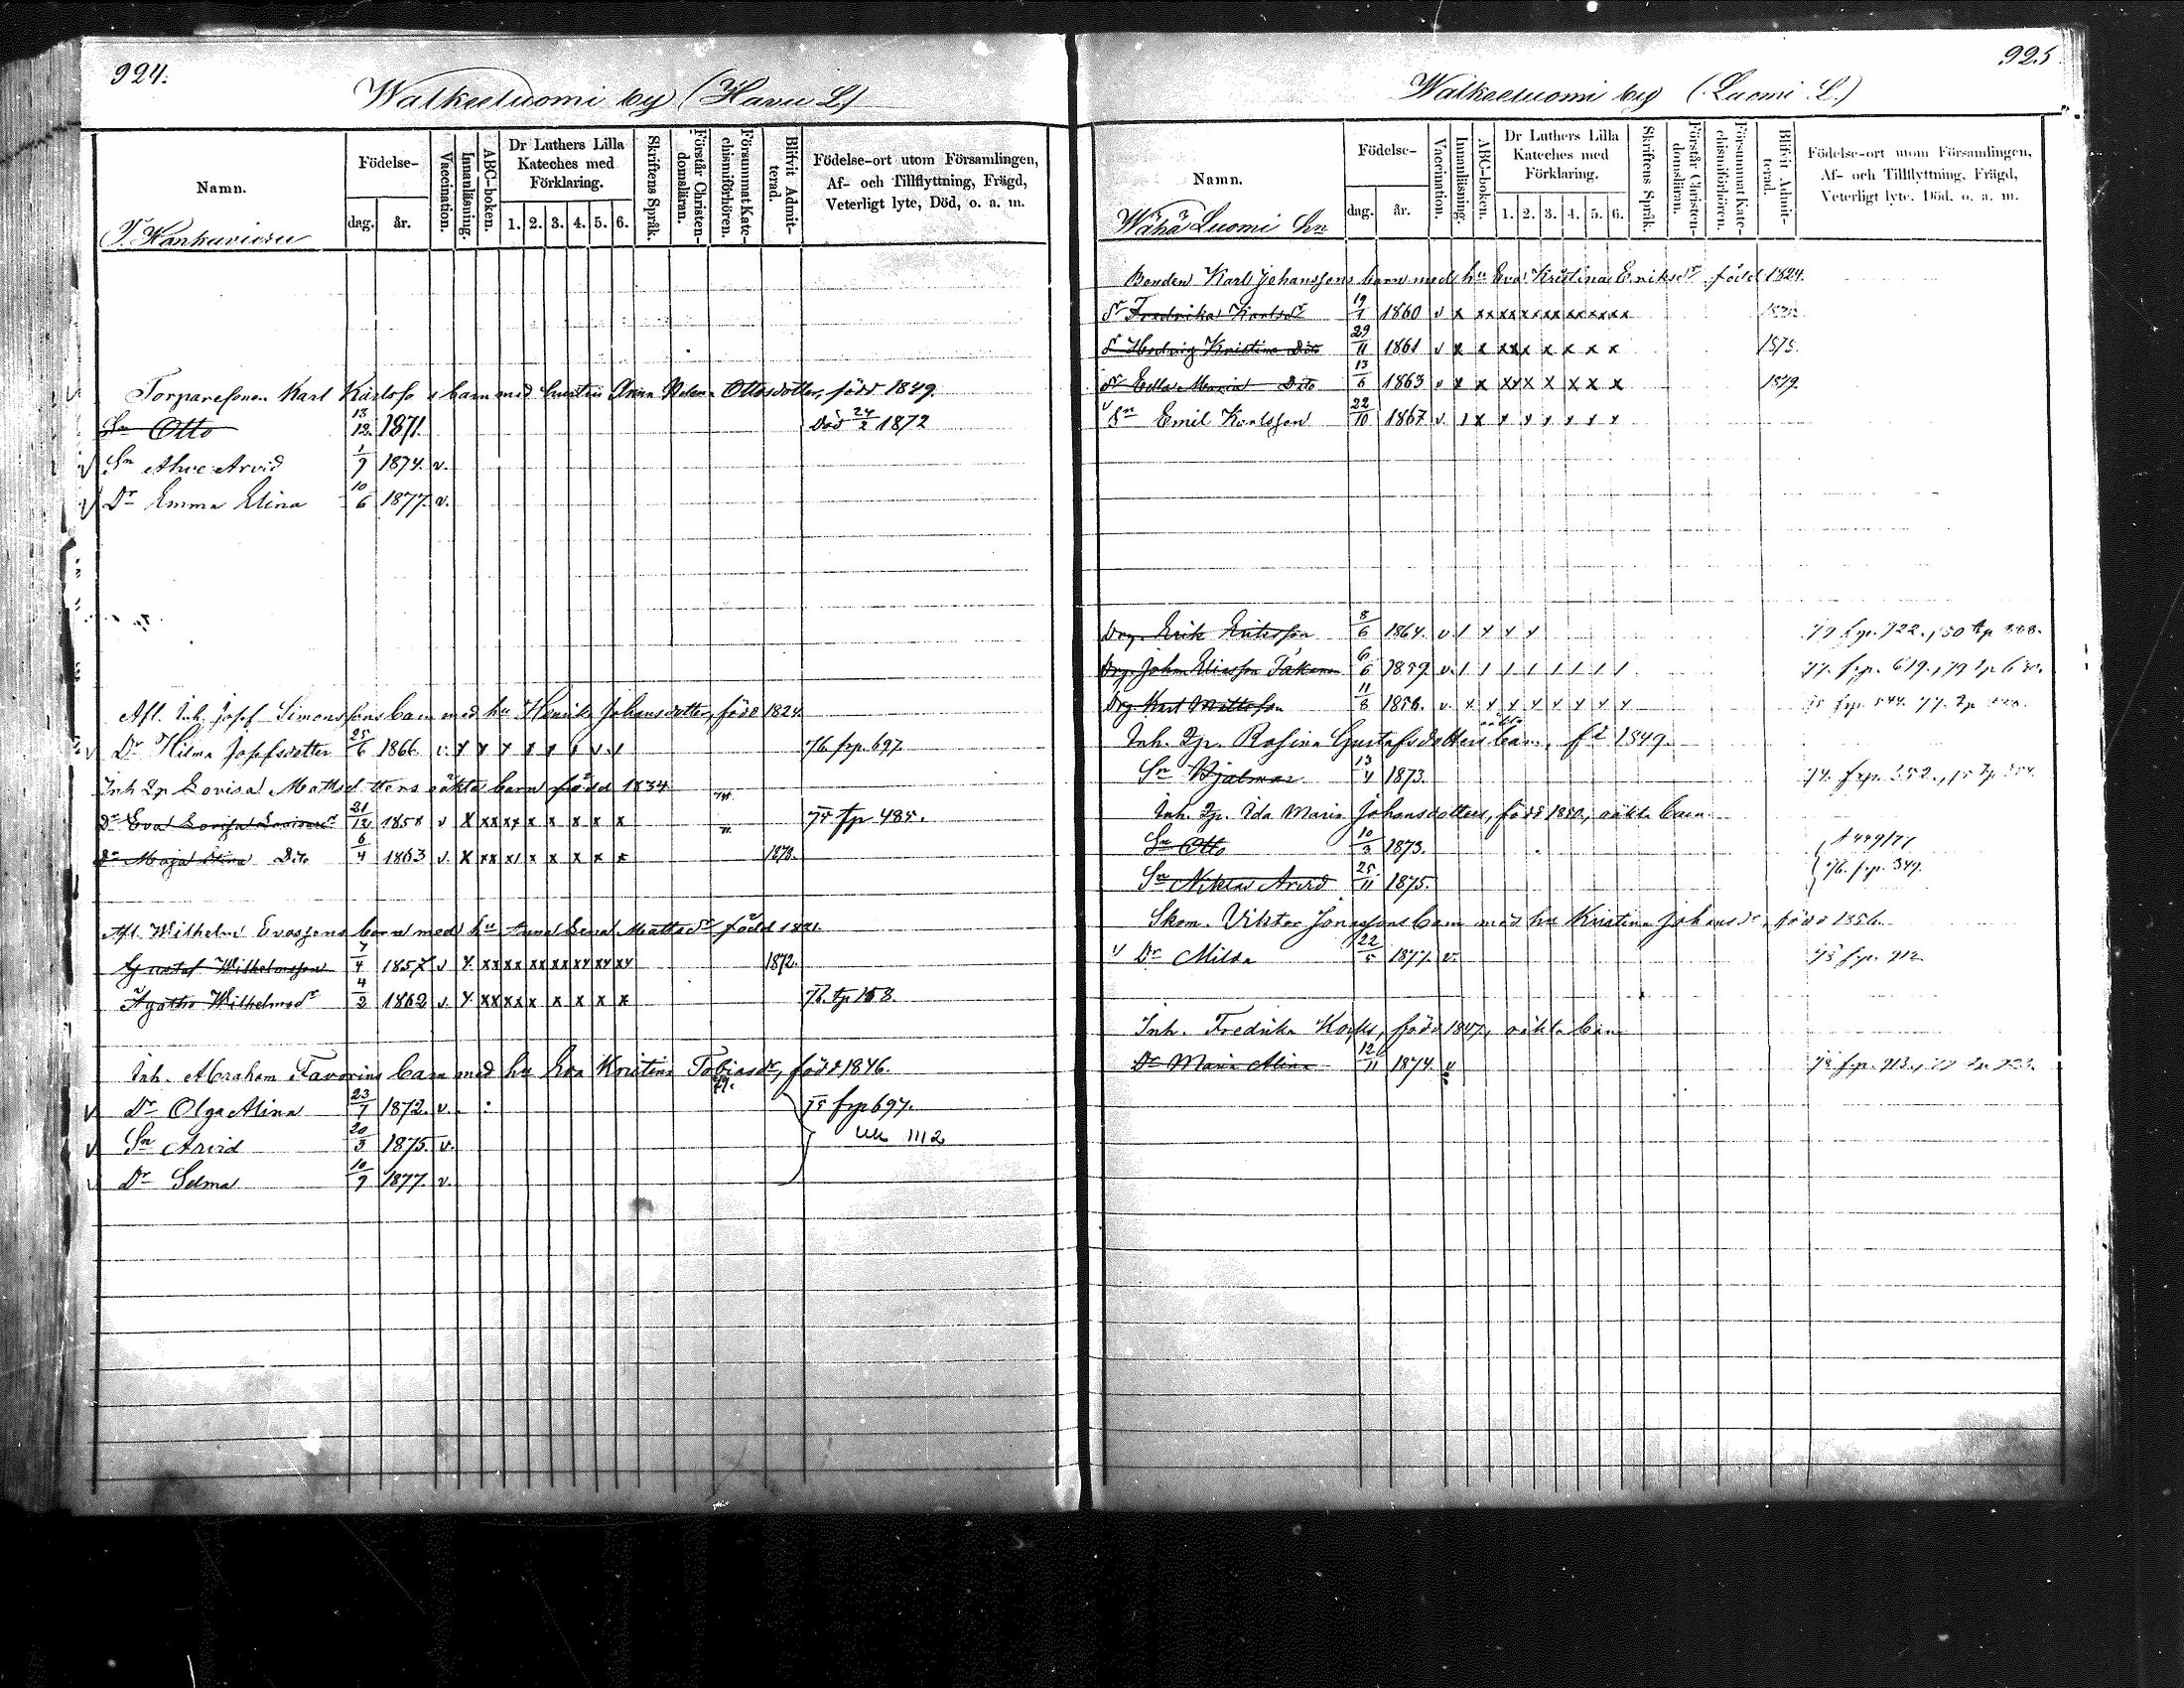 924.
Walkeeluomi by (Havu L.)
Namn.
Födelse-
dag.
år.
Vaccination.
Innanläsning.
ABC-boken.
Dr Luthers Lilla
Kateches med
Förklaring.
1. 2. 3. 4. 5. 6.
Skriftens Språk.
Förstår Christen-
domsläran.
Försummat Kate-
chismiförhören.
Blifvit Admit-
terad.
Födelse-ort utom Församlingen,
Af- och Tillflyttning, Frägd,
Veterligt lyte, Död, o. a. m.
Torparesonen Karl Karlsso s barn med hustru Anna Helena Ottosdotter, född 1849.
Sn Otto 13/12 1871. Död 24/2 1872
Sn Alwe Arvid 1/9 1874. v.
Dr Emma Elina 10/6 1877. v.
Afl. Inh. Josef Simonssons barn med hu Henrika Johansdotter, född 1824.
Dr Hilma Josefsdotter 25/6 1866 v. 76 frp. 697.
Inh Lovisa Matsdotters oäkta barn född 1834.
Dr Eva Lovisa 21/12 1858 v x xx xx x x x x x 75 tp 485.
Dr Maja Stina Dito 6/4 1863 v. x xx x x x x x x 1878.
Afl. Wilhelm Evassons barn med hu Anna Lena Mattsdr född 1821.
Gustaf Wilhelmsson 7/4 1857 v x xx xx xx xx xx xx xx 1872.
Agatha Wilhelmsdr 4/2 1862 v. x xx xx x x x x x tp 168.
Inh. Abraham Favorins barn med hu Eva Kristina Tobiasdr, född 1846.
Dr Olga Alina 23/7 1872. v. 75 frp 697.
Sn Arvid 20/3 1875. v. Uk 1112
Dr Selma 10/9 1877. v.
925
Walkeeluomi by (Luomi L.)
Namn.
Wähä Luomi Hn
Födelse-
dag.
år.
Vaccination.
Innanläsning.
ABC-boken.
Dr Luthers Lilla
Kateches med
Förklaring.
1. 2. 3. 4. 5. 6.
Skriftens Språk.
Förstår Christen-
domsläran.
Försummat Kate-
chismiförhören.
Blifvit Admit-
terad.
Födelse-ort utom Församlingen,
Af- och Tillflyttning, Frägd,
Veterligt lyte, Död, o. a. m.
Bonden Karl Johanssons barn med hu Eva Kristina Eriksdr född 1824.
Dr Fredrika Karlsdr 19/1 1860 v x xx xx xx xx xx xx xx
Dr Hedvig Kristina Dito 29/11 1861 v x x xxx x x x x 1878.
Dr Edla Maria Dito 13/6 1863 v x x xxx x x x x 1879.
Sn Emil Karlsson 22/10 1867 v.
Drg. Erik Eriksson 8/6 1864. v. 79 frp. 722.
Drg. Johan Eliasson 6/6 1859. v. 77. frp. 619.
Drg. Karl 11/8 1856. v. frp. 544. 77.
Inh. Rosina Gustafsdotters oäkta barn, fd 1849.
Sn Hjalmar 13/4 1873. 74. frp. 352.
Inh. Ida Maria Johansdotters, född 1850, oäkta barn.
Sn Otto 10/3 1873.
Sn Niklas Arvid 25/11 1875. 76. frp. 349.
Skom. Viktor Jonassons barn med hu Kristina Johansdr, född 1856.
Dr Milda 22/5 1877. v. 78 frp. 912.
Inh. Fredrika född 1847, oäkta barn
Dr Maria Alina 12/11 1874. v 78 frp. 913.